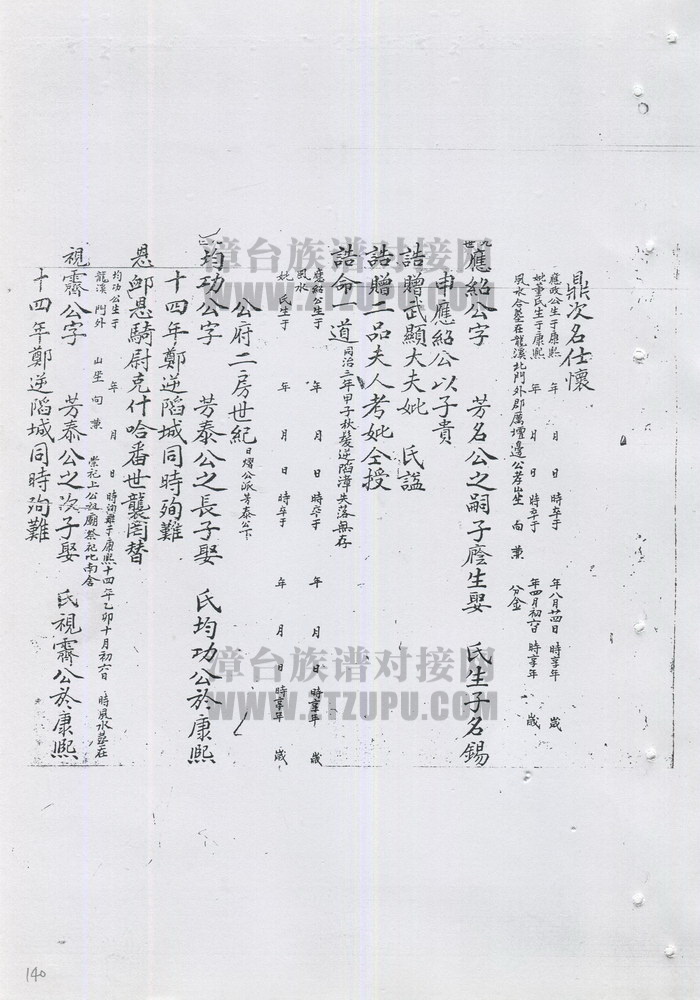 鼎次名仕懷
應政公生于康熙 年 月 日 時卒于 年八月廿四日 時享年 歲
妣董氏生于康熙 年 月 日 時卒于 年四月初六日 時享年 歲
風水合塟在龍溪北門外郡厲壇邊公孝山坐 向 兼 分金
九世
應紹公字 芳名公之嗣子廕生娶 氏生子名錫
申應紹公以子貴
誥贈武顯大夫妣 氏謚
誥贈二品夫人考妣仝授
誥命一道 同治三年甲子秋髮逆陷漳失落無存
應紹公生于 年 月 日 時卒于 年 月 日 時享年 歲
風水
妣 氏生于 年 月 日 時卒于 年 月 日 時享年 歲
公府二房世紀 日燿公派芳泰公下
均功公字 芳泰公之長子娶 氏均功公於康熙
十四年鄭逆陷城同時殉難
恩䘏恩騎尉克什哈番世襲罔替
均功公生于 年 月 日 時殉難于康熙十四年乙卯十月初六日 時風水塟在
龍溪 門外 山坐 向 兼 崇祀上公祖廟祭祀
視霽公字 芳泰公之次子娶 氏視霽公於康熙
十四年鄭逆陷城同時殉難
漳台族谱对接网
WWW.ZTZUPU.COM
漳台族谱对接网
WWW.ZTZUPU.COM
140